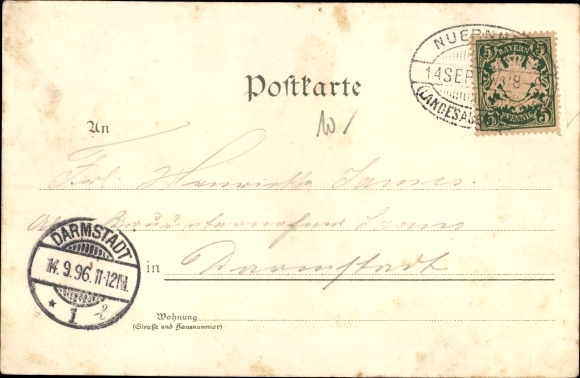 Postkarte
NUERNB
14 SEP
(LANDESAUS
5 BAYERN 5
5 PFENNIG 5
An
Frl. Henriette James.
James
DARMSTADT
14.9.96.11-12N.
* 1
in Darmstadt
Wohnung
(Straße und Hausnummer)